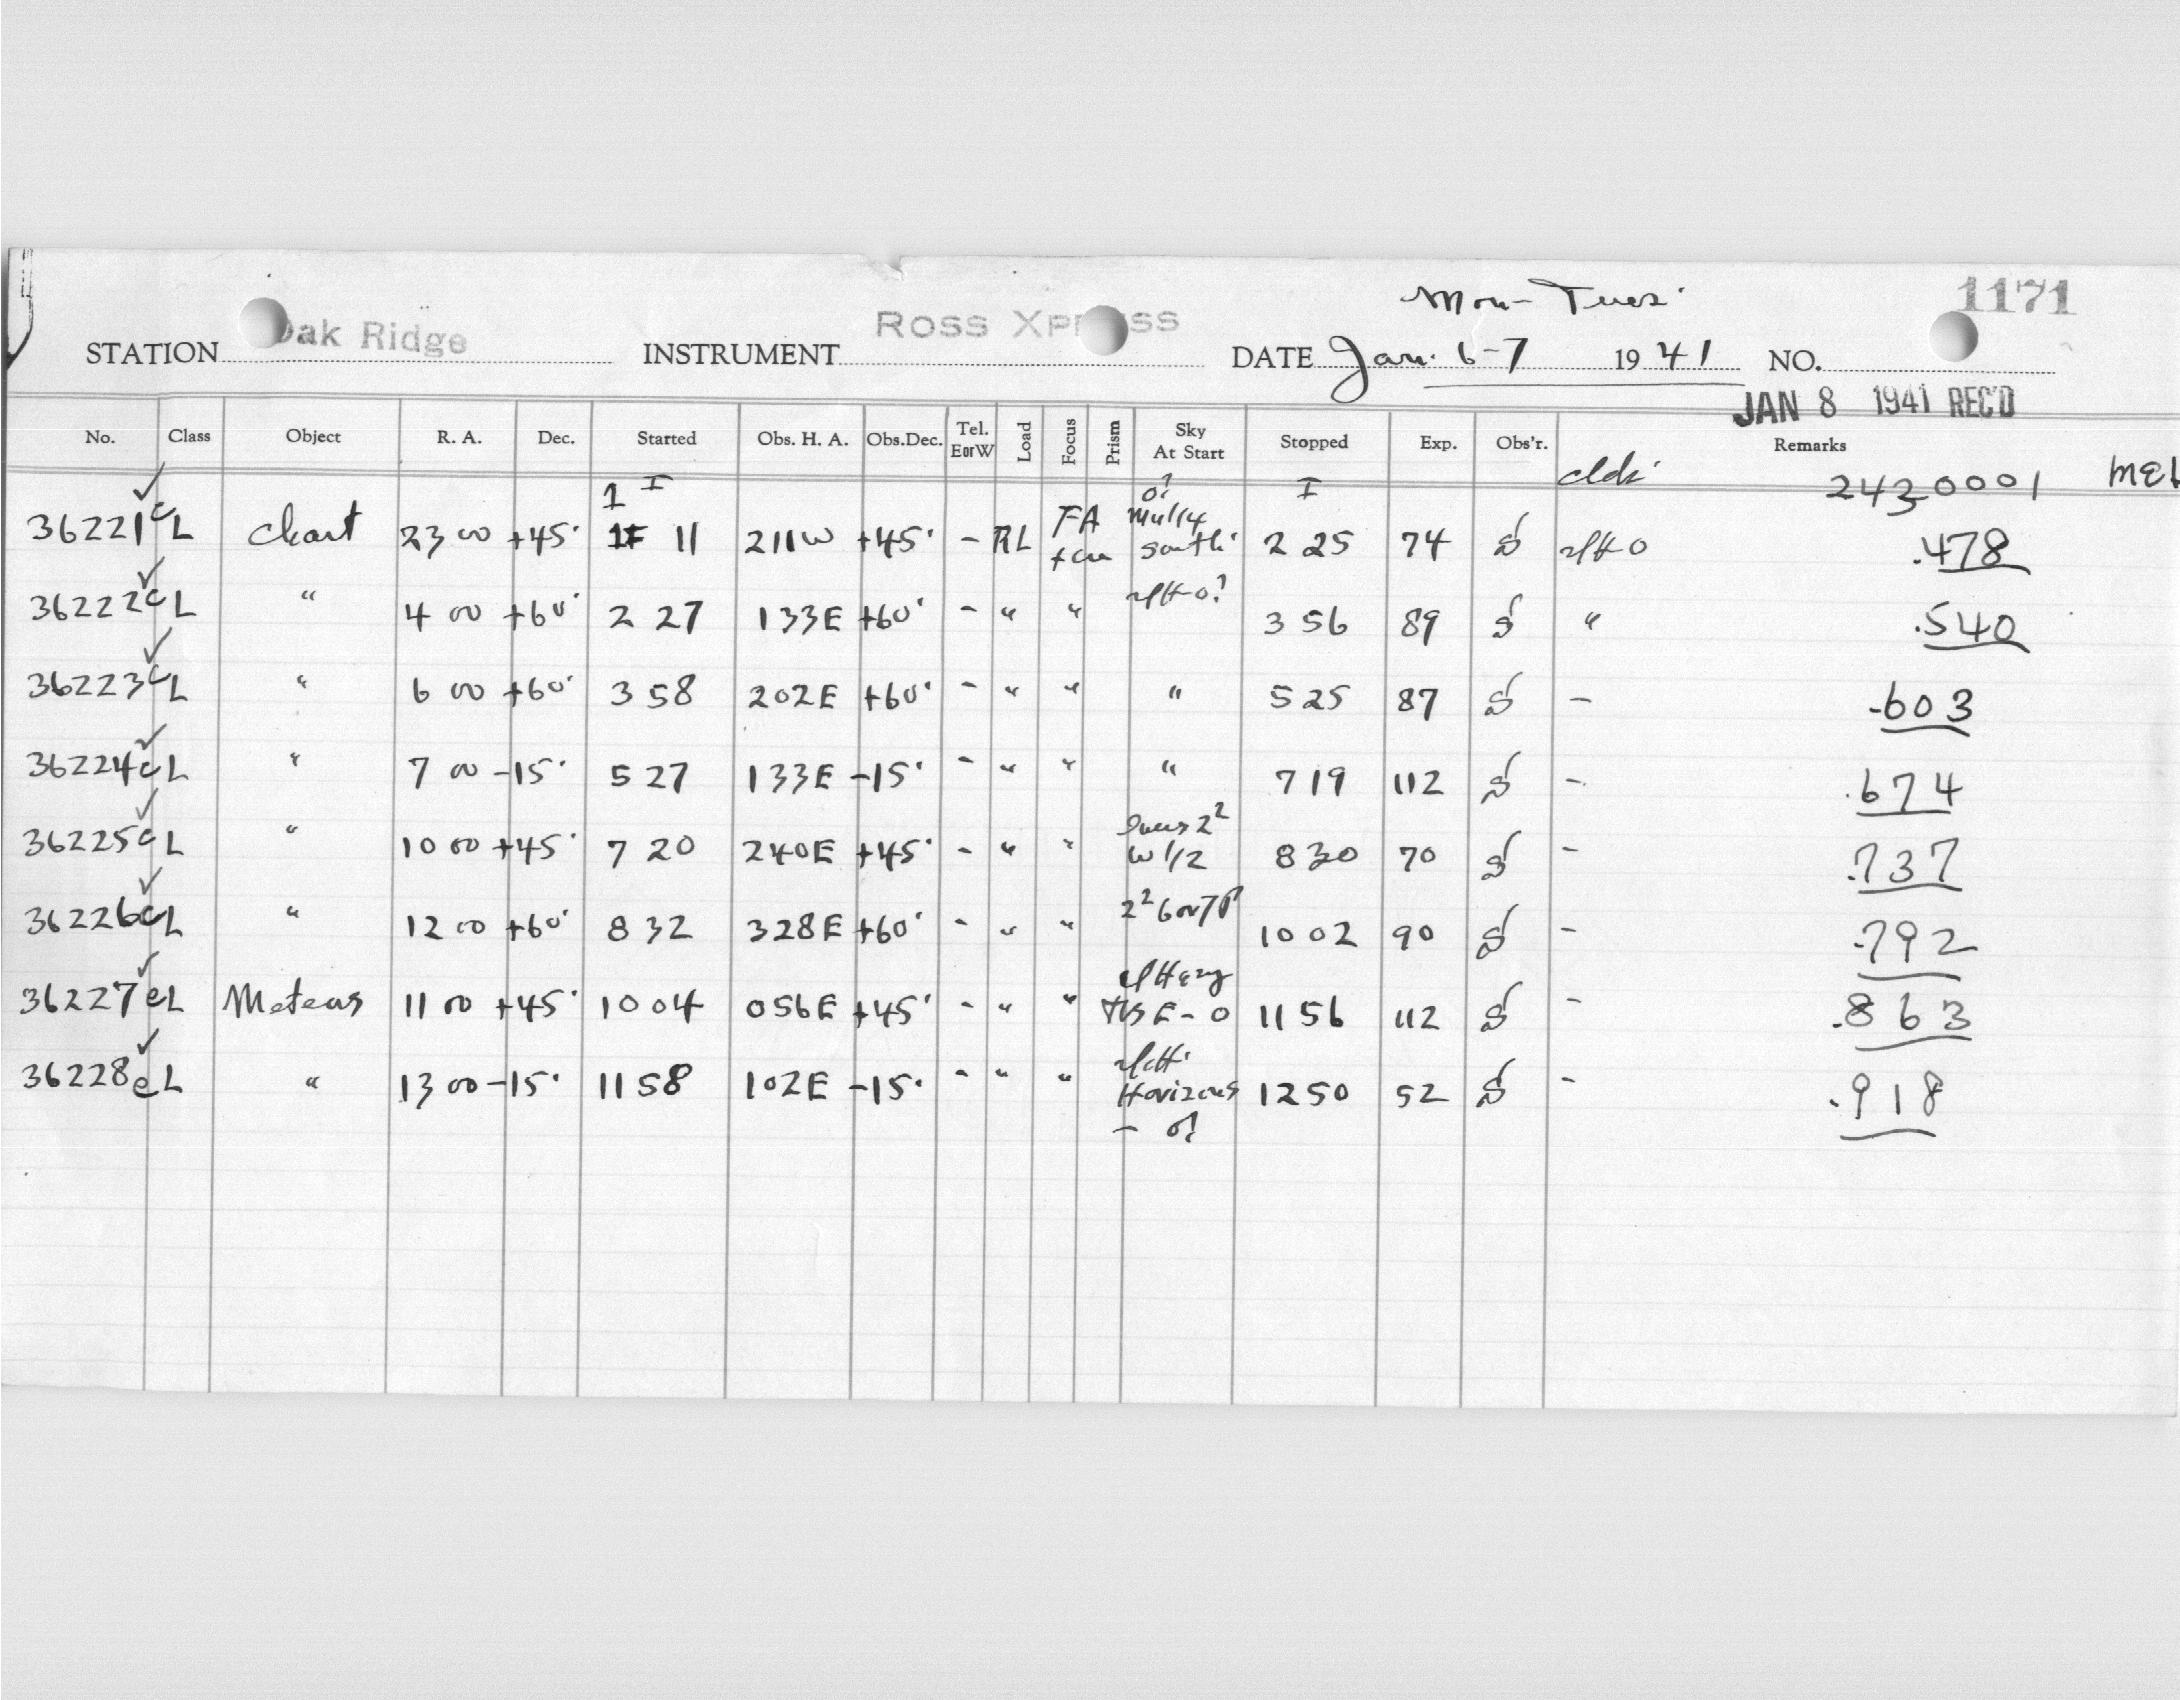 Mon-Tues. 1171
STATION Oak Ridge INSTRUMENT ROSS XPRESS DATE Jan. 6-7 1941 NO.
JAN 8 1941 REC'D
No. Class Object R. A. Dec. Started Obs. H. A. Obs.Dec. Tel. EorW Load Focus Prism Sky At Start Stopped Exp. Obs'r. Remarks
1 I 0? I 2430001
36221 c L Chart 23 00 +45° 11 211W +45° - RL FA South 2 25 74 S .478
36222 c L " 4 00 +60° 2 27 133E +60° - " " 3 56 89 S " .540
36223 c L " 6 00 +60° 3 58 202E +60° - " " " 5 25 87 S - .603
36224 c L " 7 00 -15° 5 27 133E -15° - " " " 7 19 112 S - .674
36225 c L " 10 00 +45° 7 20 240E +45° - " " W 1/2 8 30 70 S - .737
36226 c L " 12 00 +60° 8 32 328E +60° - " " 10 02 90 S - .792
36227 e L Meteors 11 00 +45° 10 04 056E +45° - " " E - 0 11 56 112 S - .863
36228 e L " 13 00 -15° 11 58 102E -15° - " " Horizons 12 50 52 S - .918
- 0?